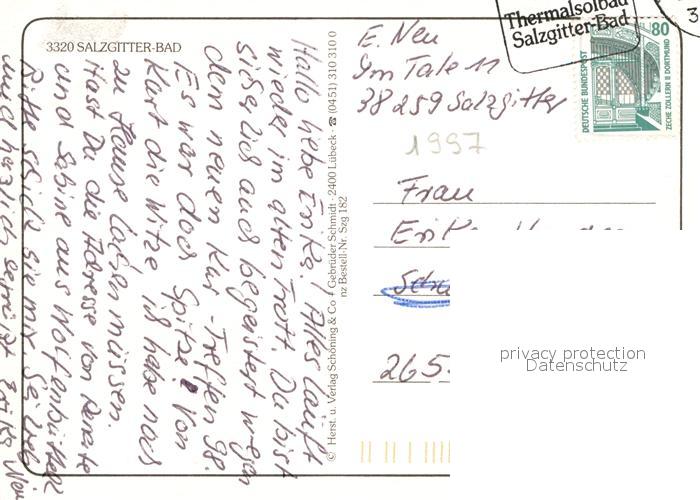 3320 SALZGITTER-BAD
Hallo liebe Erika! Alles läuft
wieder im alten Trott. Du bist
sicherlich auch begeistert wegen
dem neuen Kur-Treffen 98.
Es war doch Spitze! Von
Kurt die Witze ich habe noch
zu Hause lachen müssen.
Hast Du die Adresse von Renate
und Sabine aus Wolfenbüttel
Bitte schicke sie mir. Sei lieb
und herzlich gegrüßt Erika Neu
© Herst. u. Verlag Schöning & Co · Gebrüder Schmidt · 2400 Lübeck · ☎ (0451) 310 310 0
nz Bestell-Nr. Szg 182
E. Neu
Im Tale 11
38259 Salzgitter
1997
Thermalsolbad
Salzgitter-Bad
3
80
DEUTSCHE BUNDESPOST
ZECHE ZOLLERN II DORTMUND
Frau
Erik
Sch
265
privacy protection
Datenschutz